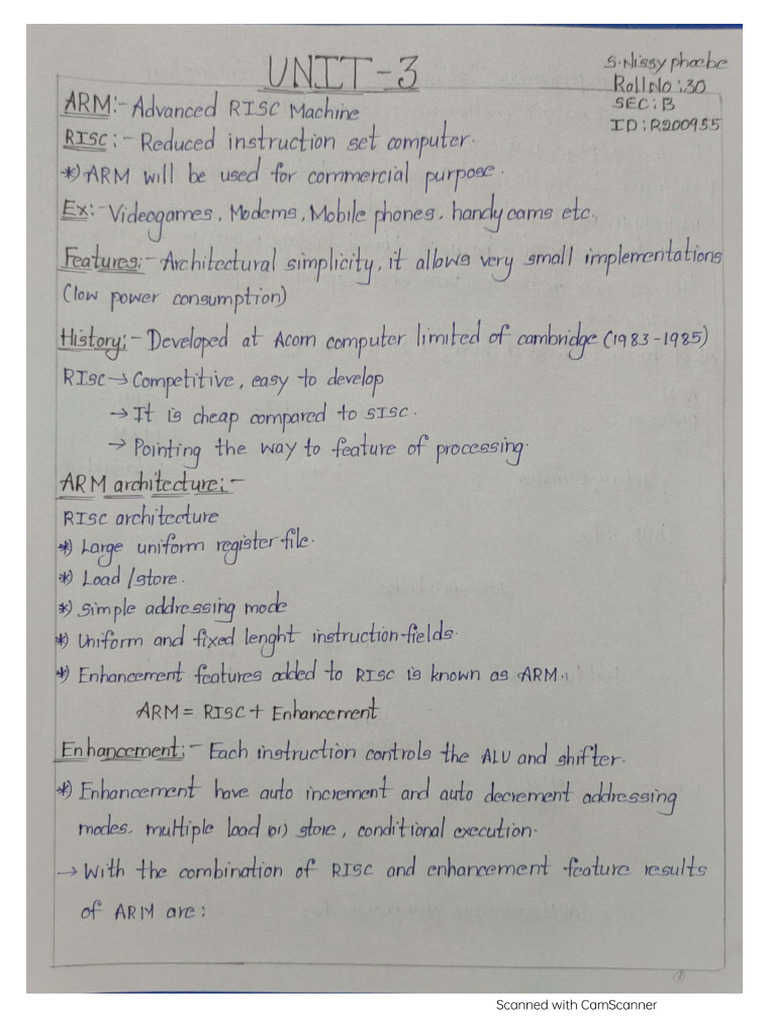 UNIT-3
S.Nissy phoebe
Roll No : 30
SEC : B
ID : R200955
ARM:- Advanced RISC Machine
RISC:- Reduced instruction set computer.
*) ARM will be used for commercial purpose.
Ex:- Videogames, Modems, Mobile phones, handy cams etc.
Features:- Architectural simplicity, it allows very small implementations
(low power consumption)
History:- Developed at Acorn computer limited of cambridge (1983-1985)
RISC → Competitive, easy to develop
→ It is cheap compared to SISC.
→ Pointing the way to feature of processing.
ARM architecture:-
RISC architecture
*) Large uniform register file.
*) Load/store.
*) Simple addressing mode
*) Uniform and fixed lenght instruction fields.
*) Enhancement features added to RISC is known as ARM.
ARM = RISC + Enhancement
Enhancement:- Each instruction controls the ALU and shifter.
*) Enhancement have auto increment and auto decrement addressing
modes, multiple load (or) store, conditional execution.
→ With the combination of RISC and enhancement feature results
of ARM are:
1
Scanned with CamScanner